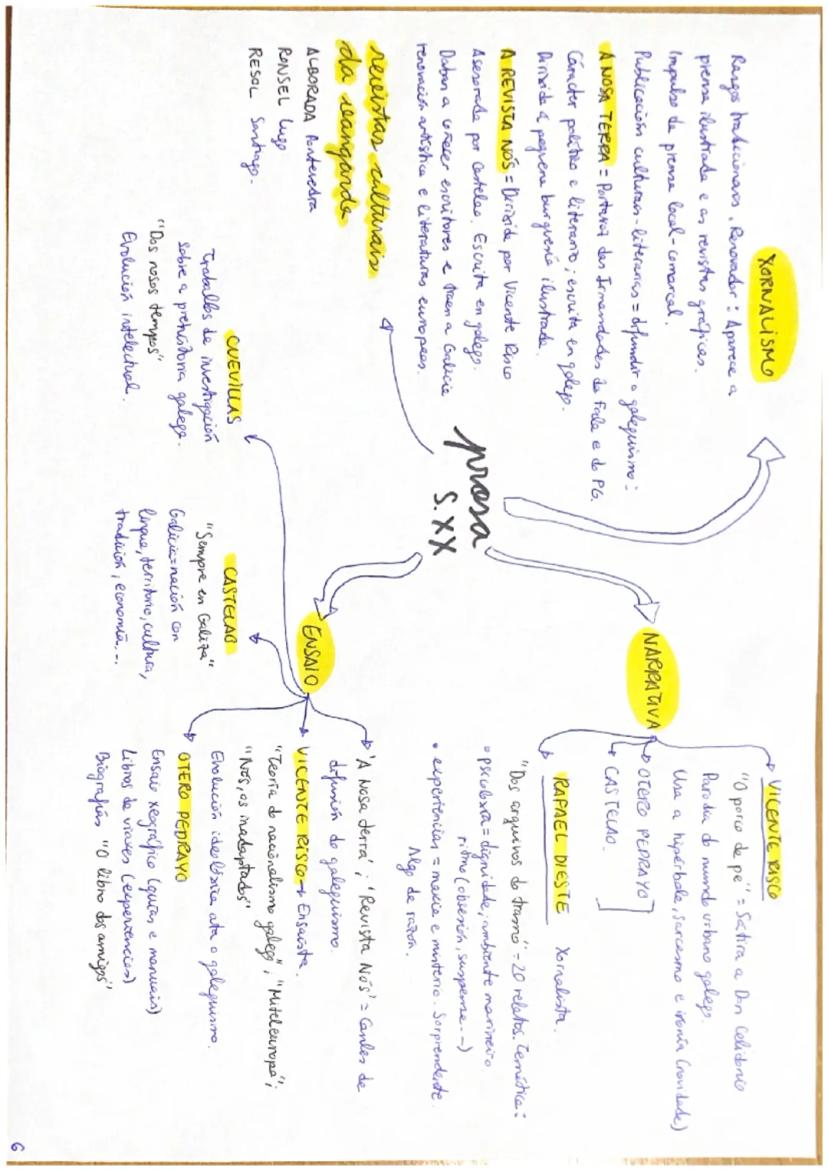 prosa
S. XX
XORNALISMO
Rasgos tradicionais. Renovador: Aparece a
prensa ilustrada e as revistas gráficas.
Impulso da prensa local-comarcal.
Publicación culturais-literarias = difundir o galeguismo:
A NOSA TERRA = Portavoz das Irmandades da Fala e do PG.
Carácter político e literario; escrita en galego.
Dirixida á pequena burguesía ilustrada.
A REVISTA NÓS = Dirixida por Vicente Risco
Asesorada por Castelao. Escrita en galego.
Daban a coñecer escritores e traen a Galicia
renovación artística e literaturas europeas.
revistas culturais
da vangarda
ALBORADA Pontevedra
RONSEL Lugo
RESOL Santiago.
NARRATIVA
VICENTE RISCO
"O porco de pé" = Sátira a Don Celidonio
Parodia do mundo urbano galego.
Usa a hipérbole, sarcasmo e ironía (novidade)
OTERO PEDRAYO
CASTELAO.
RAFAEL DIESTE Xornalista.
"Dos arquivos do trasno" = 20 relatos. Temática:
• psicoloxía = dignidade; ambiente mariñeiro
ritmo (obsesión, suspense...)
• experiencias = maxia e misterio. Sorprendente
Algo de razón.
ENSAIO
'A Nosa terra'; 'Revista Nós' = Canles de
difusión do galeguismo
VICENTE RISCO → Ensaísta.
"Teoría do nacionalismo galego"; "Mitteleuropa";
"Nós, os inadaptados"
Evolución ideolóxica ata o galeguismo.
OTERO PEDRAYO
Ensaio xeográfico (guías e manuais)
Libros de viaxes (experiencias)
Biografías "O libro dos amigos"
CASTELAO
"Sempre en Galiza"
Galicia = nación con
lingua, territorio, cultura,
tradición, economía...
CUEVILLAS
Traballos de investigación
sobre a prehistoria galega.
"Dos nosos tempos"
Evolución intelectual.
6